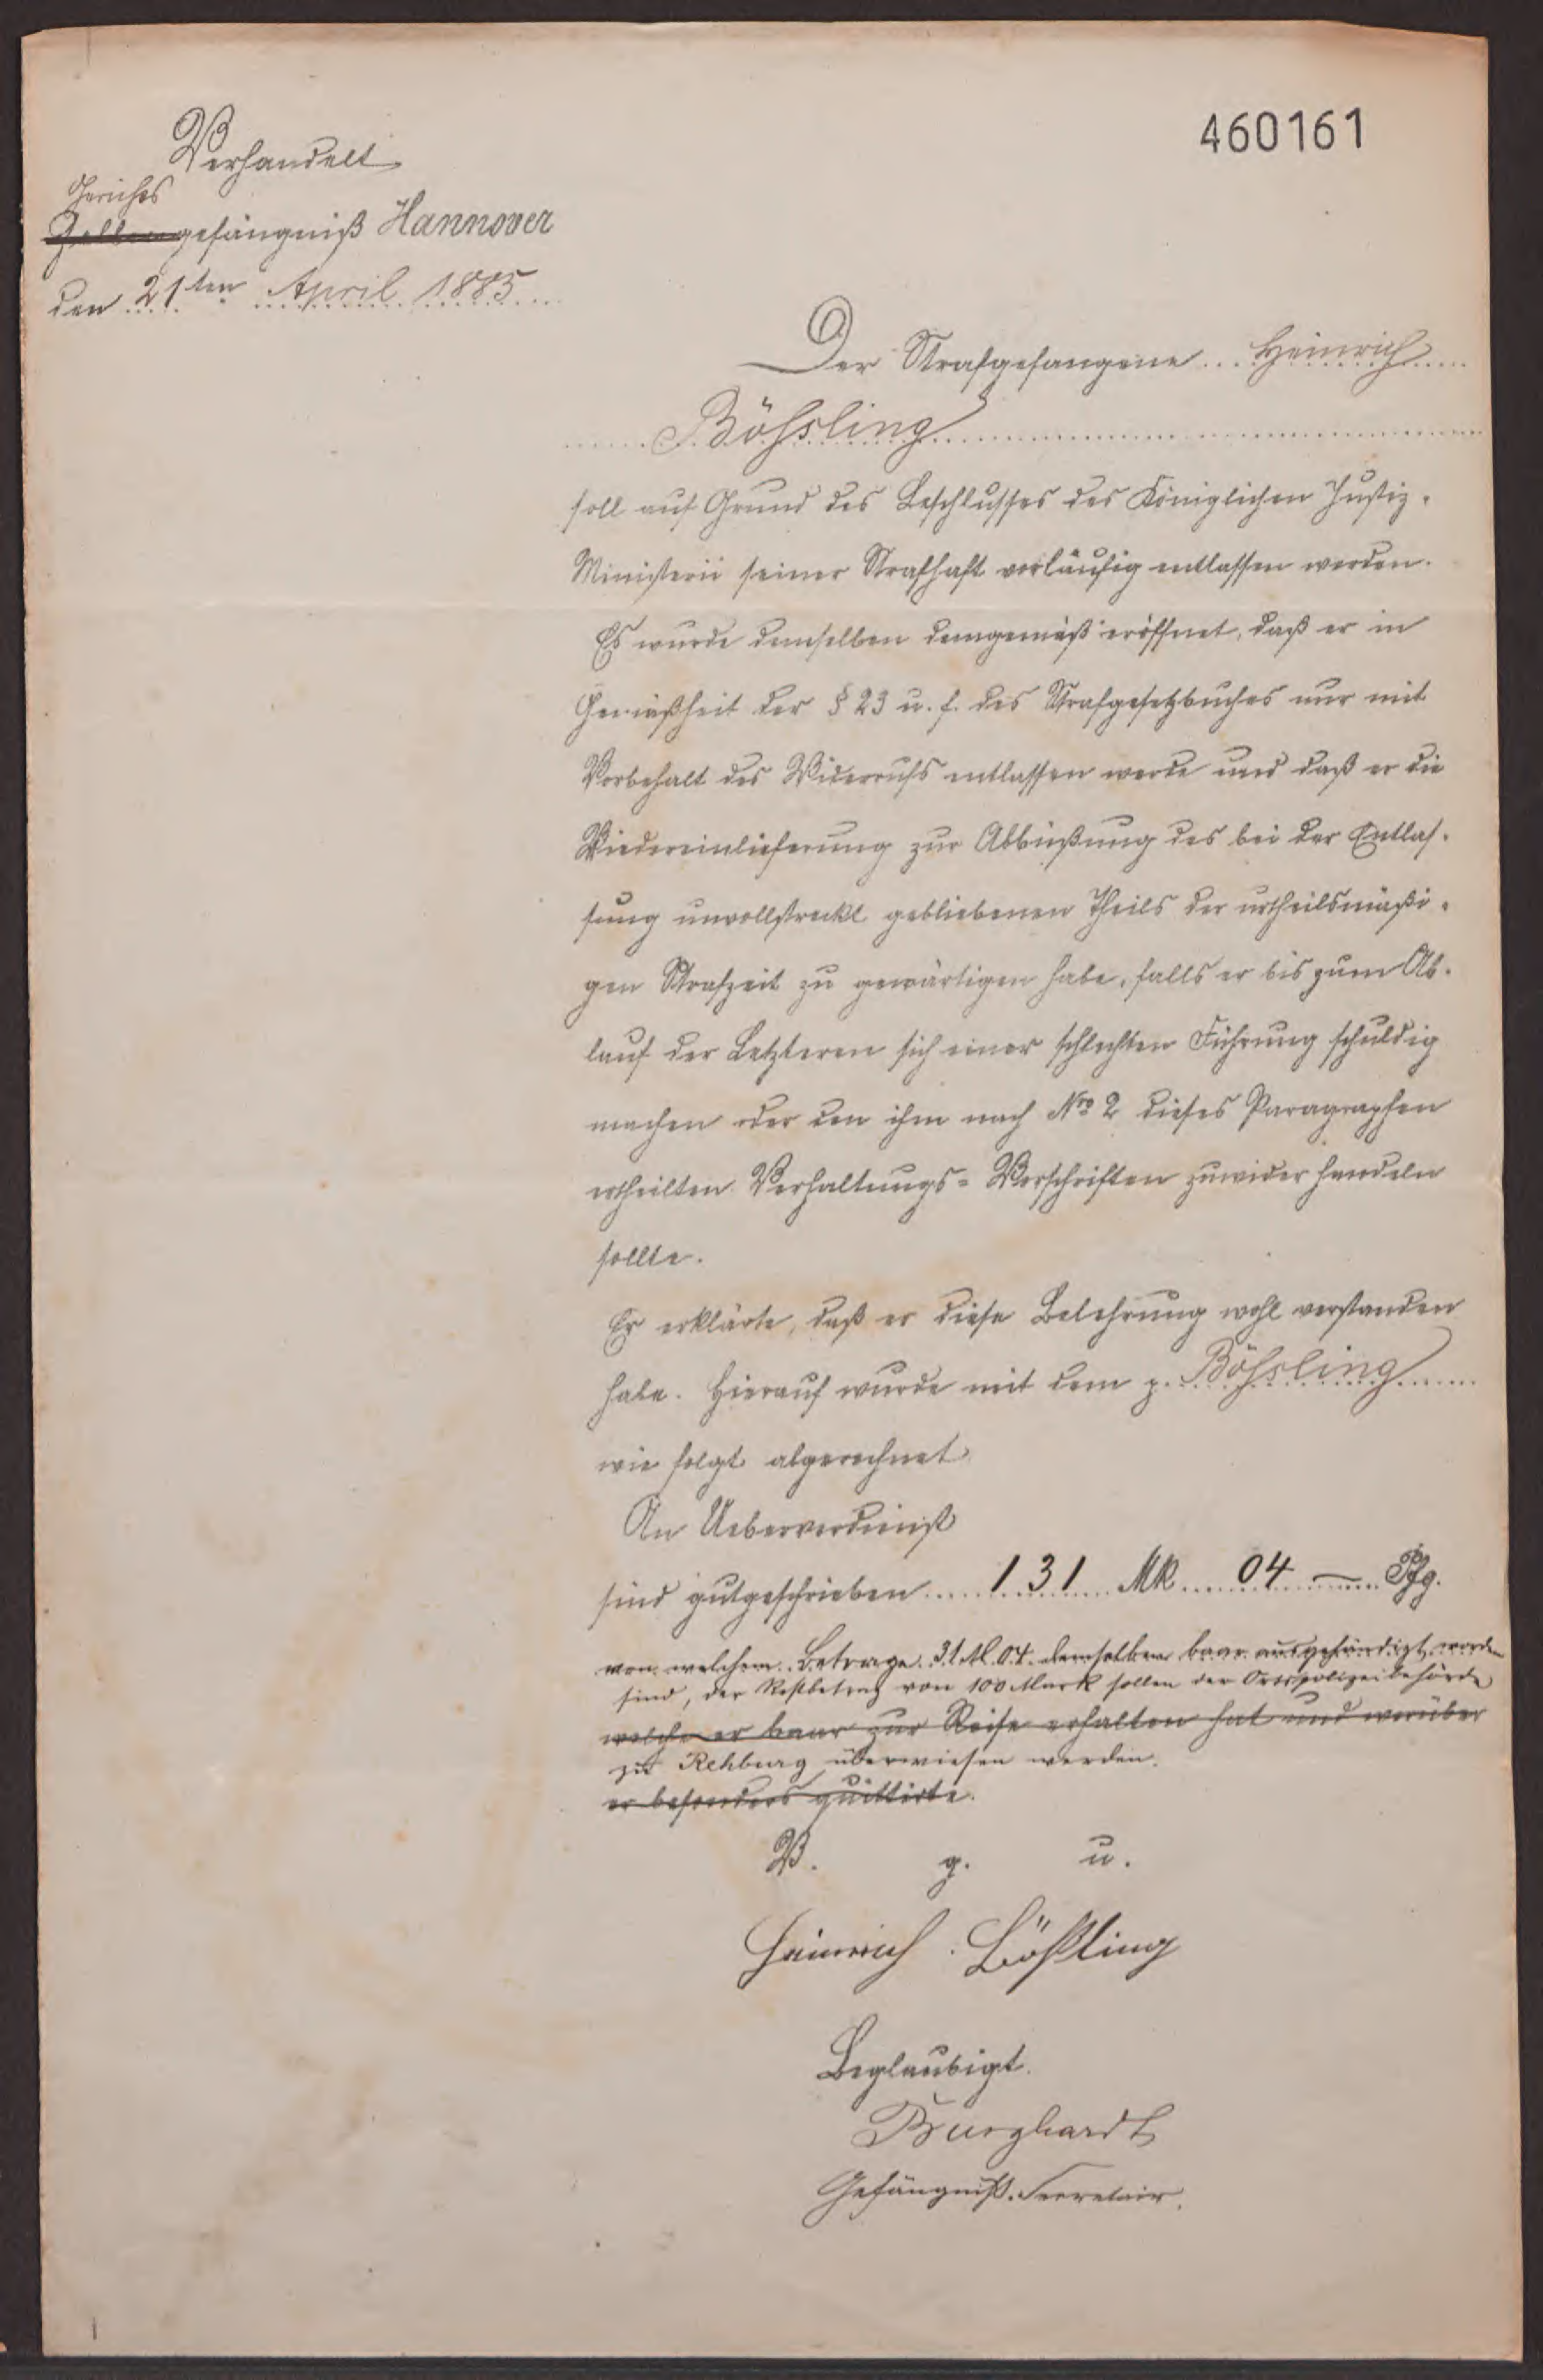 460161
Verhandelt
Gerichts
Zellengefängniß Hannover
den 21ten April 1885
Der Strafgefangene Heinrich
Bößling
soll auf Grund des Beschlusses des Königlichen Justiz-
Ministerii seiner Strafhaft vorläufig entlassen werden.
Es wurde demselben demgemäß eröffnet, daß er in
Gemäßheit der § 23 u. f. des Strafgesetzbuches nur mit
Vorbehalt des Widerrufs entlassen werde und daß er die
Wiedereinlieferung zur Abbüßung des bei der Entlas-
sung unvollstreckt gebliebenen Theils der urtheilsmäßi-
gen Strafzeit zu gewärtigen habe, falls er bis zum Ab-
lauf der Letzteren sich einer schlechten Führung schuldig
machen oder den ihm nach Nro 2 dieses Paragraphen
ertheilten Verhaltungs-Vorschriften zuwider handeln
sollte.
Er erklärte, daß er diese Belehrung wohl verstanden
habe. Hierauf wurde mit dem p. Bößling
wie folgt abgerechnet
An Ueberverdienst
sind gutgeschrieben 131 Mk 04 — Pfg.
von welchem Betrage 31 M. 04. demselben baar ausgehändigt worden
sind, der Restbetrag von 100 Mark sollen der Ortspolizeibehörde
welche er baar zur Reise erhalten hat und worüber
zu Rehburg überwiesen werden.
er besonders quittirte.
V. g. u.
Heinrich Bößling
Beglaubigt.
Burghardt
Gefängniß-Secretair.